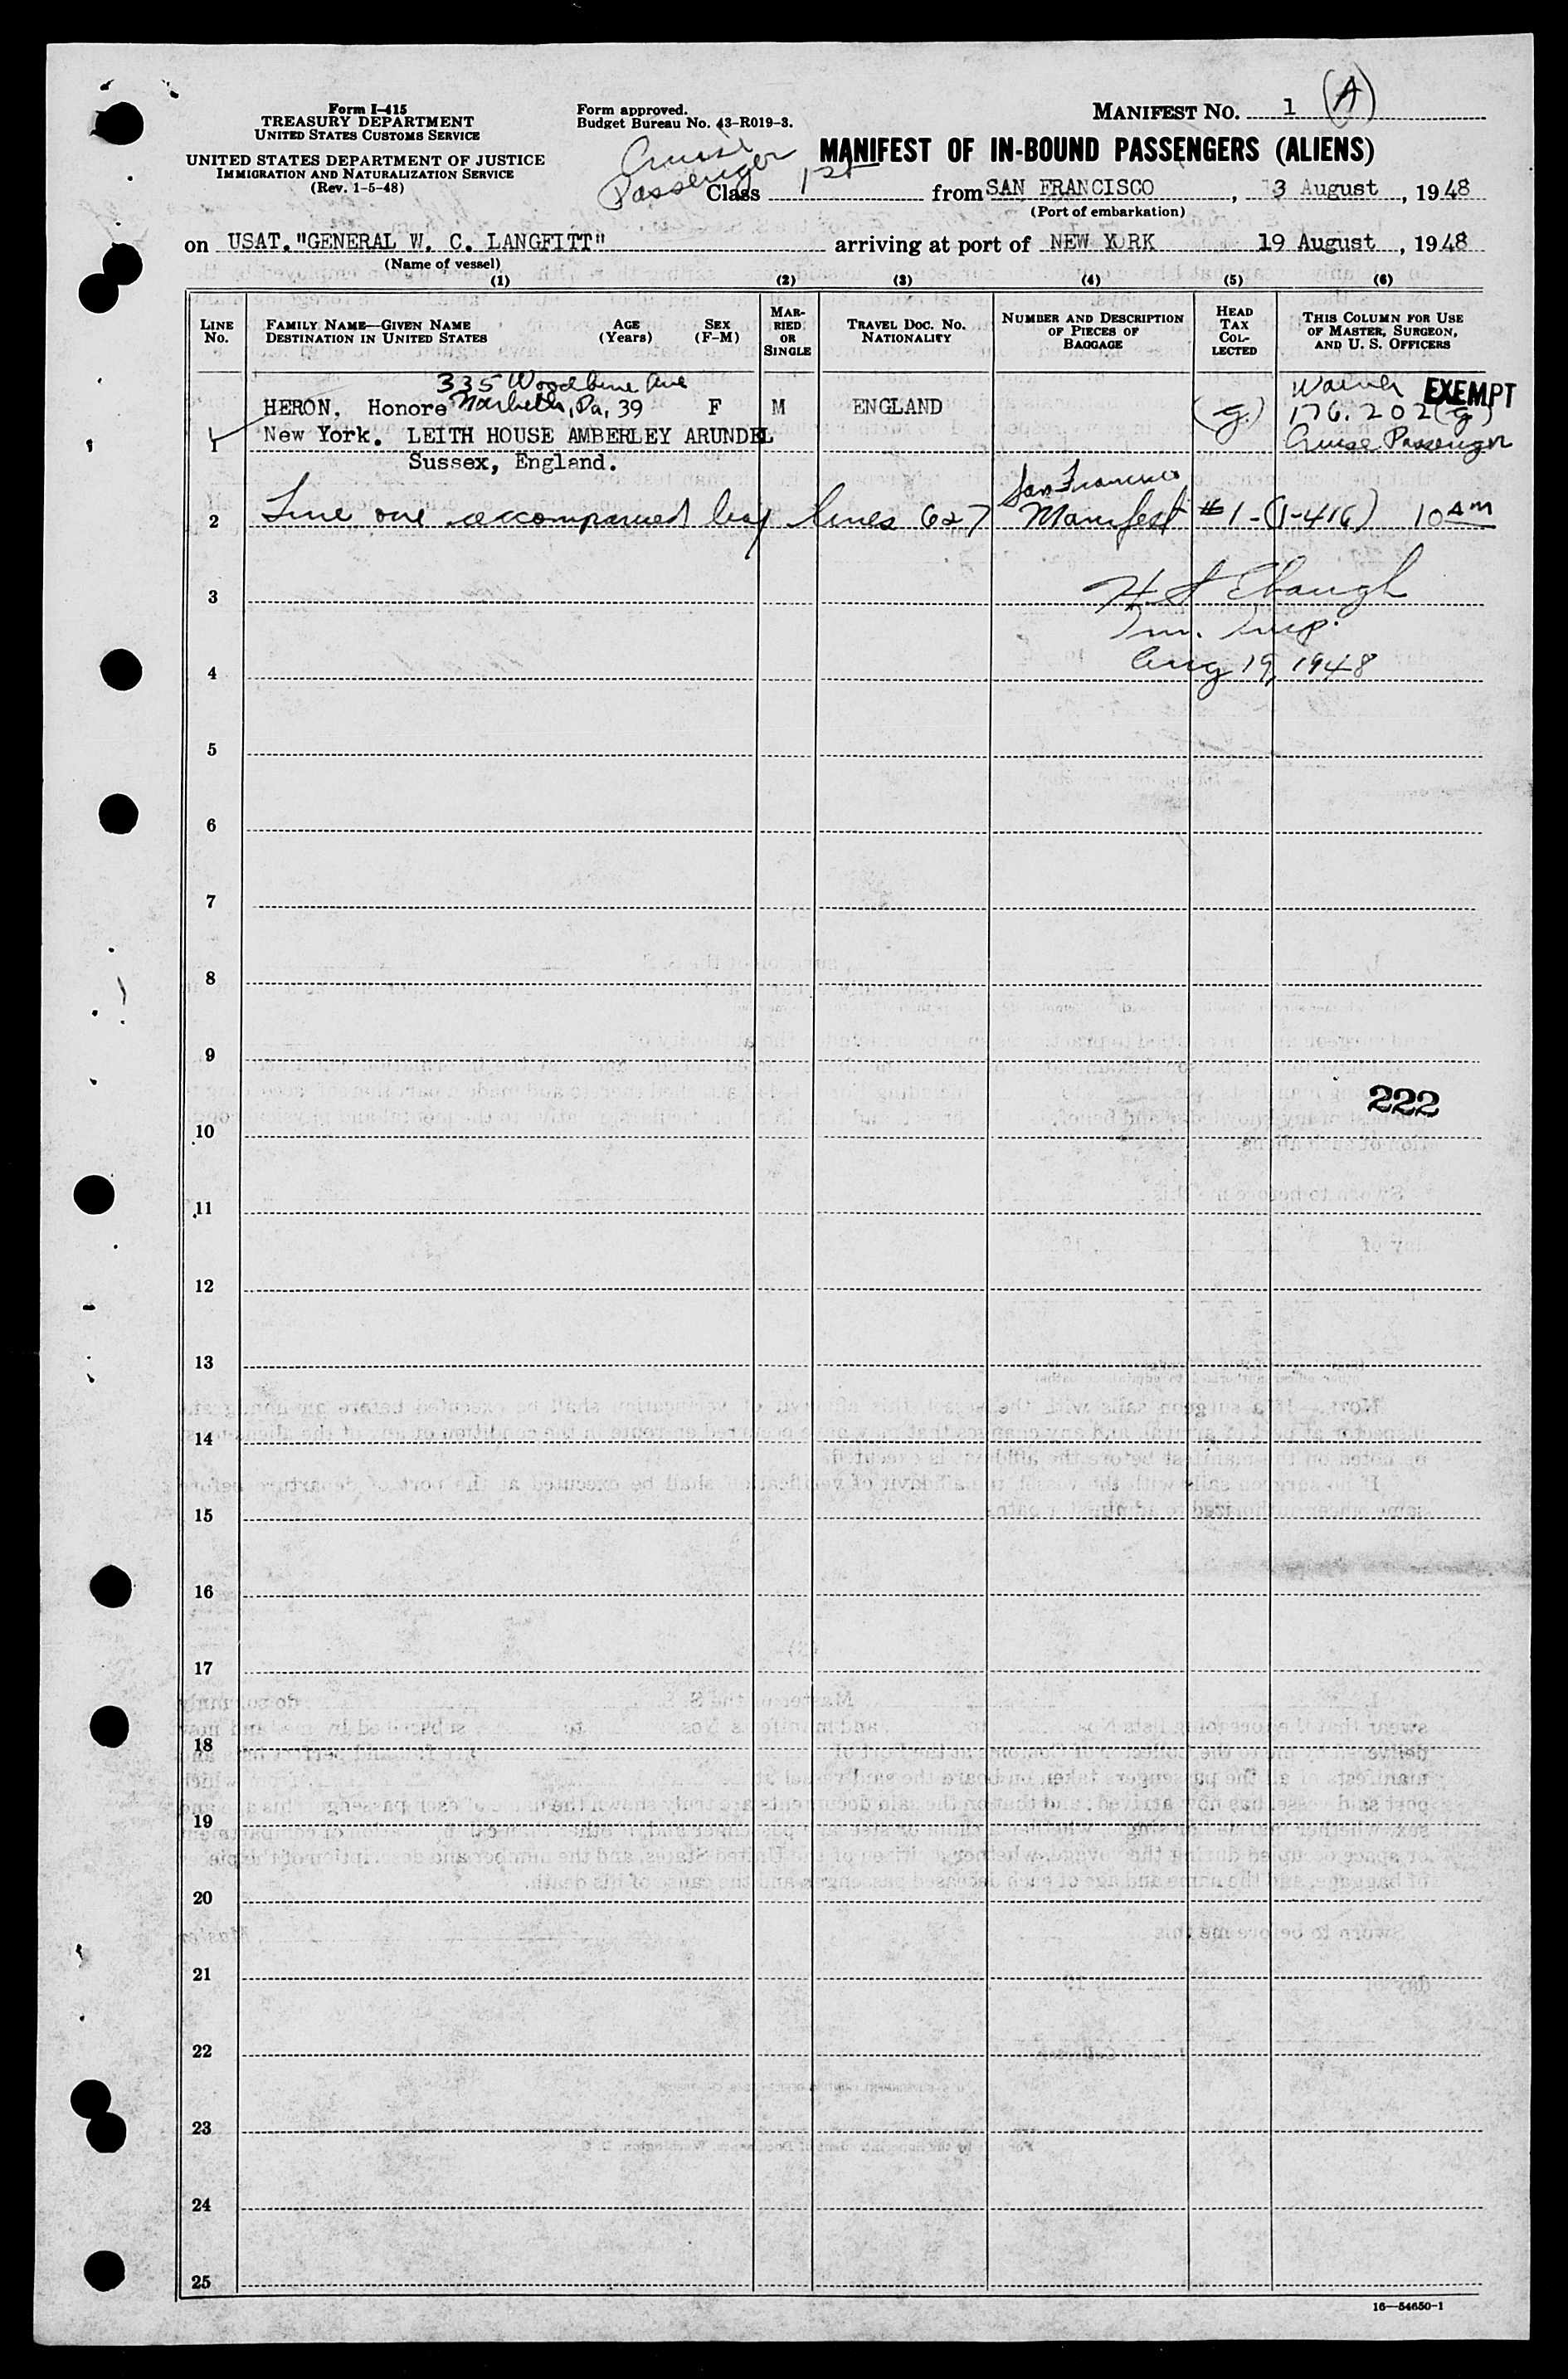 Form I-415
TREASURY DEPARTMENT
UNITED STATES CUSTOMS SERVICE
UNITED STATES DEPARTMENT OF JUSTICE
IMMIGRATION AND NATURALIZATION SERVICE
(Rev. 1-5-48)
Form approved.
Budget Bureau No. 43-R019-3.
MANIFEST NO. 1 (A)
MANIFEST OF IN-BOUND PASSENGERS (ALIENS)
Cruise
Passenger
Class 1st from SAN FRANCISCO, 3 August, 1948
(Port of embarkation)
on USAT. "GENERAL W. C. LANGFITT" arriving at port of NEW YORK 19 August, 1948
(Name of vessel)
(1) (2) (3) (4) (5) (6)
LINE NO.
FAMILY NAME—GIVEN NAME AGE SEX
DESTINATION IN UNITED STATES (Years) (F-M)
MARRIED OR SINGLE
TRAVEL DOC. NO. NATIONALITY
NUMBER AND DESCRIPTION OF PIECES OF BAGGAGE
HEAD TAX COLLECTED
THIS COLUMN FOR USE OF MASTER, SURGEON, AND U. S. OFFICERS
335 Woodbine Ave
HERON, Honore Narberth, Pa, 39 F M ENGLAND (g.) EXEMPT
176.202(g)
1 New York. LEITH HOUSE AMBERLEY ARUNDEL Cruise Passenger
Sussex, England.
San Francisco
2 Line one accompanied by lines 6&7 Manifest #1-(I-416) 10 AM
3 H S Ebaugh
Imm. Insp.
4 Aug 19, 1948
5
6
7
8
9
222
10
11
12
13
14
15
16
17
18
19
20
21
22
23
24
25
16—54650-1